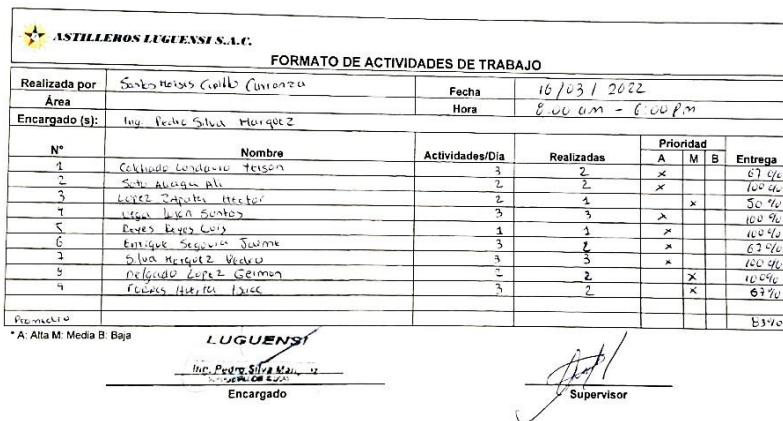 ASTILLEROS LUGUENSI S.A.C.
FORMATO DE ACTIVIDADES DE TRABAJO
Realizada por Santos Moises Carrillo Carranza Fecha 16/03/2022
Área Hora 8:00 am - 6:00 pm
Encargado (s): Ing. Pedro Silva Marquez
Prioridad
N° Nombre Actividades/Día Realizadas A M B Entrega
1 Collhado 3 2 x 67%
2 Soto Ali 2 2 x 100%
3 Lopez Zapata Hector 2 1 x 50%
4 Santos 3 3 x 100%
5 Reyes Reyes Luis 1 1 x 100%
6 Enrique Segovia Jaime 3 2 x 67%
7 Silva Marquez Pedro 3 3 x 100%
8 Delgado Lopez German 2 2 x 100%
9 Huerta 3 2 x 67%
Promedio 83%
* A: Alta M: Media B: Baja
LUGUENSI
Ing. Pedro Silva
Encargado Supervisor